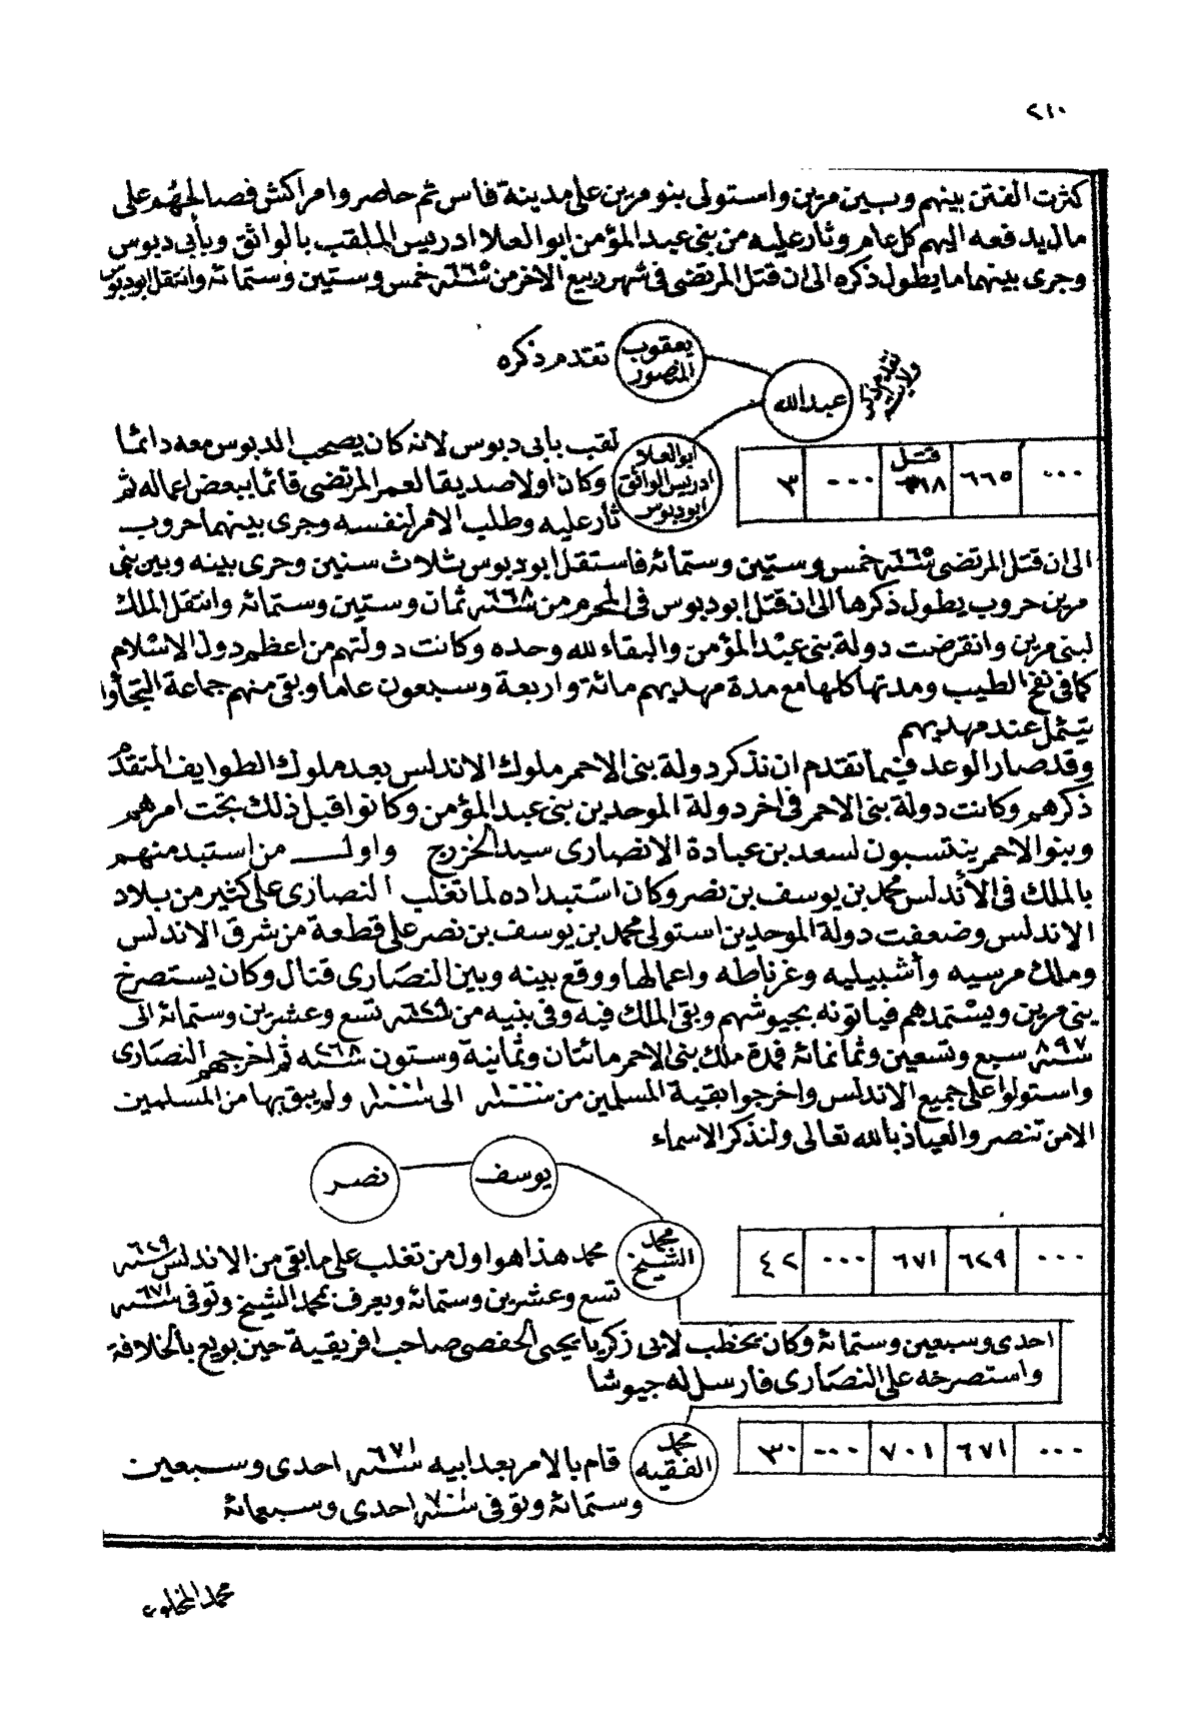 ٢١٠
كثرت الفتن بينهم وبين مرين واستولى بنو مرين على مدينة فأس ثم حاصروا مراكش فصالحهم على
مال يدفعه اليهم كل عام وثار عليه من بنى عبد المؤمن ابو العلا ادريس الملقب بالواثق وبأبى دبوس
وجرى بينهما ما يطول ذكره الى ان قتل المرتضى فى شهر ربيع الاخر من سنة ٦٦٥ خمس وستين وستمائة وانتقل ابو دبوس
يعقوب المنصور
تقدم ذكره
عبدالله
تقدم ذكر ولايته
ابو العلا ادريس الواثق ابو دبوس
٠٠٠ ٦٦٥ قتل ٦٦٨ ٠٠٠ ٣
لقب بابى دبوس لانه كان يصحب الدبوس معه دائما
وكان اولا صديقا لعمر المرتضى قائما ببعض اعماله ثم
ثار عليه وطلب الامر لنفسه وجرى بينهما حروب
الى ان قتل المرتضى سنة ٦٦٥ خمس وستين وستمائة فاستقل ابو دبوس ثلاث سنين وجرى بينه وبين بنى
مرين حروب يطول ذكرها الى ان قتل ابو دبوس فى المحرم من سنة ٦٦٨ ثمان وستين وستمائة وانتقل الملك
لبنى مرين وانقرضت دولة بنى عبد المؤمن والبقاء لله وحده وكانت دولتهم من اعظم دول الاسلام
كما فى نفح الطيب ومدتها كلها مع مدة مهديهم مائة واربعة وسبعون عاما وبقى منهم جماعة التجأوا
بتينمل عند مهديهم
وقد صار الوعد فيما تقدم ان نذكر دولة بنى الاحمر ملوك الاندلس بعد ملوك الطوايف المتقدم
ذكرهم وكانت دولة بنى الاحمر فى اخر دولة الموحدين بنى عبد المؤمن وكانوا قبل ذلك تحت امرهم
وبنو الاحمر ينتسبون لسعد بن عبادة الانصارى سيد الخزرج واول من استبد منهم
بالملك فى الأندلس محمد بن يوسف بن نصر وكان استبداده لما تغلب النصارى على كثير من بلاد
الاندلس وضعفت دولة الموحدين استولى محمد بن يوسف بن نصر على قطعة من شرق الاندلس
وملك مرسيه وأشبيليه وغرناطه واعمالها ووقع بينه وبين النصارى قتال وكان يستصرخ
بنى مرين ويستمدهم فيأتونه بجيوشهم وبقى الملك فيه وفى بنيه من سنة ٦٢٩ تسع وعشرين وستمائة الى
سنة ٨٩٧ سبع وتسعين وثمانمائة فمدة ملك بنى الاحمر مائتان وثمانية وستون سنة ٢٦٨ ثم اخرجهم النصارى
واستولوا على جميع الاندلس واخرجوا بقية المسلمين من سنة الى سنة ولم يبق بها من المسلمين
الا من تنصر والعياذ بالله تعالى ولنذكر الاسماء
يوسف
نصر
محمد الشيخ
٠٠٠ ٦٢٩ ٦٧١ ٠٠٠ ٤٢
محمد هذا هو اول من تغلب على ما بقى من الاندلس سنة ٦٢٩
تسع وعشرين وستمائة ويعرف بمحمد الشيخ وتوفى سنة ٦٧١
احدى وسبعين وستمائة وكان يخطب لابى زكريا يحيى الحفصى صاحب افريقية حين بويع بالخلافة
واستصرخه على النصارى فأرسل له جيوشا
محمد الفقيه
٠٠٠ ٦٧١ ٧٠١ ٠٠٠ ٣٠
قام بالامر بعد ابيه سنة ٦٧١ احدى وسبعين
وستمائة وتوفى سنة ٧٠١ احدى وسبعمائة
محمد المخلوع